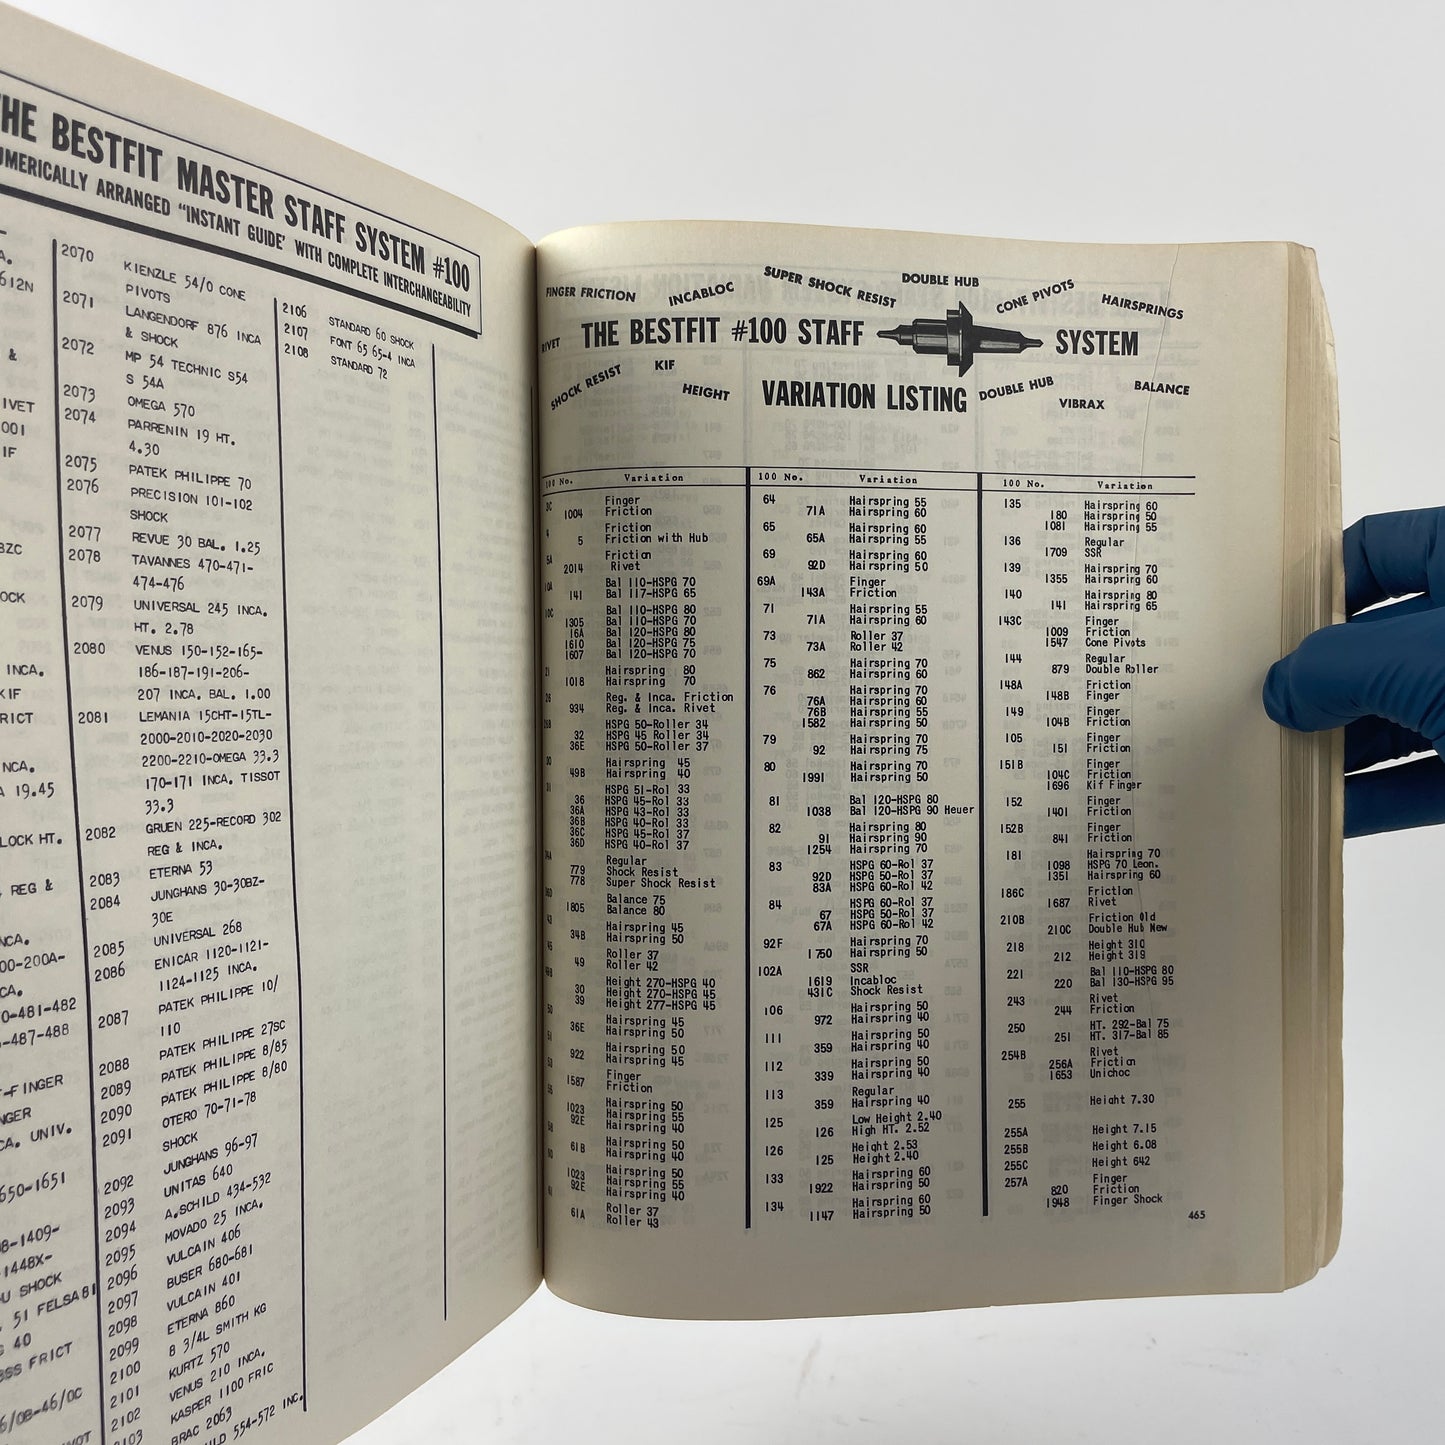 THE BESTFIT MASTER STAFF SYSTEM #100
NUMERICALLY ARRANGED "INSTANT GUIDE' WITH COMPLETE INTERCHANGEABILITY
612N
&
IVET
001
IF
BZC
OCK
INCA.
KIF
RICT
NCA.
A 19.45
LOCK HT.
REG &
NCA.
00-200A-
CA.
0-481-482
-487-488
T-FINGER
NGER
CA. UNIV.
650-1651
8-1409-
1448X-
U SHOCK
51 FELSA 81
G 40
BSS FRICT
6/0B-46/0C
2070 KIENZLE 54/0 CONE
PIVOTS
2071 LANGENDORF 876 INCA
& SHOCK
2072 MP 54 TECHNIC S54
S 54A
2073 OMEGA 570
2074 PARRENIN 19 HT.
4.30
2075 PATEK PHILIPPE 70
2076 PRECISION 101-102
SHOCK
2077 REVUE 30 BAL. 1.25
2078 TAVANNES 470-471-
474-476
2079 UNIVERSAL 245 INCA.
HT. 2.78
2080 VENUS 150-152-165-
186-187-191-206-
207 INCA. BAL. 1.00
2081 LEMANIA 15CHT-15TL-
2000-2010-2020-2030
2200-2210-OMEGA 33.3
170-171 INCA. TISSOT
33.3
2082 GRUEN 225-RECORD 302
REG & INCA.
2083 ETERNA 53
2084 JUNGHANS 30-30BZ-
30E
2085 UNIVERSAL 268
2086 ENICAR 1120-1121-
1124-1125 INCA.
2087 PATEK PHILIPPE 10/
110
2088 PATEK PHILIPPE 27SC
2089 PATEK PHILIPPE 8/85
2090 PATEK PHILIPPE 8/80
2091 OTERO 70-71-78
SHOCK
2092 JUNGHANS 96-97
2093 UNITAS 640
2094 A.SCHILD 434-532
2095 MOVADO 25 INCA.
2096 VULCAIN 406
2097 BUSER 680-681
2098 VULCAIN 401
2099 ETERNA 860
2100 8 3/4L SMITH KG
2101 KURTZ 570
2102 VENUS 210 INCA.
2103 KASPER 1100 FRIC
BRAC 2063
554-572 INC.
2106 STANDARD 60 SHOCK
2107 FONT 65 65-4 INCA
2108 STANDARD 72
FINGER FRICTION INCABLOC SUPER SHOCK RESIST DOUBLE HUB CONE PIVOTS HAIRSPRINGS
RIVET THE BESTFIT #100 STAFF SYSTEM
SHOCK RESIST KIF HEIGHT VARIATION LISTING DOUBLE HUB VIBRAX BALANCE
100 No. Variation
3C Finger
1004 Friction
4 Friction
5 Friction with Hub
5A Friction
2014 Rivet
10A Bal 110-HSPG 70
141 Bal 117-HSPG 65
10C Bal 110-HSPG 80
1305 Bal 110-HSPG 70
16A Bal 120-HSPG 80
1610 Bal 120-HSPG 75
1607 Bal 120-HSPG 70
21 Hairspring 80
1018 Hairspring 70
26 Reg. & Inca. Friction
934 Reg. & Inca. Rivet
HSPG 50-Roller 34
32 HSPG 45 Roller 34
36E HSPG 50-Roller 37
30 Hairspring 45
49B Hairspring 40
31 HSPG 51-Rol 33
36 HSPG 45-Rol 33
36A HSPG 43-Rol 33
36B HSPG 40-Rol 33
36C HSPG 45-Rol 37
36D HSPG 40-Rol 37
Regular
779 Shock Resist
778 Super Shock Resist
Balance 75
1805 Balance 80
43 Hairspring 45
34B Hairspring 50
45 Roller 37
49 Roller 42
Height 270-HSPG 40
30 Height 270-HSPG 45
39 Height 277-HSPG 45
50 Hairspring 45
36E Hairspring 50
51 Hairspring 50
922 Hairspring 45
Finger
1587 Friction
Hairspring 50
1023 Hairspring 55
92E Hairspring 40
Hairspring 50
61B Hairspring 40
60 Hairspring 50
1023 Hairspring 55
92E Hairspring 40
61 Roller 37
61A Roller 43
100 No. Variation
64 Hairspring 55
71A Hairspring 60
65 Hairspring 60
65A Hairspring 55
69 Hairspring 60
92D Hairspring 50
69A Finger
143A Friction
71 Hairspring 55
71A Hairspring 60
73 Roller 37
73A Roller 42
75 Hairspring 70
862 Hairspring 60
76 Hairspring 70
76A Hairspring 60
76B Hairspring 55
1582 Hairspring 50
79 Hairspring 70
92 Hairspring 75
80 Hairspring 70
1991 Hairspring 50
81 Bal 120-HSPG 80
1038 Bal 120-HSPG 90 Heuer
82 Hairspring 80
91 Hairspring 90
1254 Hairspring 70
83 HSPG 60-Rol 37
92D HSPG 50-Rol 37
83A HSPG 60-Rol 42
84 HSPG 60-Rol 37
67 HSPG 50-Rol 37
67A HSPG 60-Rol 42
92F Hairspring 70
1750 Hairspring 50
102A SSR
1619 Incabloc
431C Shock Resist
106 Hairspring 50
972 Hairspring 40
111 Hairspring 50
359 Hairspring 40
112 Hairspring 50
339 Hairspring 40
113 Regular
359 Hairspring 40
125 Low Height 2.40
126 High HT. 2.52
126 Height 2.53
125 Height 2.40
133 Hairspring 60
1922 Hairspring 50
134 Hairspring 60
1147 Hairspring 50
100 No. Variation
135 Hairspring 60
180 Hairspring 50
1081 Hairspring 55
136 Regular
1709 SSR
139 Hairspring 70
1355 Hairspring 60
140 Hairspring 80
141 Hairspring 65
143C Finger
1009 Friction
1547 Cone Pivots
144 Regular
879 Double Roller
148A Friction
148B Finger
149 Finger
104B Friction
105 Finger
151 Friction
151B Finger
104C Friction
1696 Kif Finger
152 Finger
1401 Friction
152B Finger
841 Friction
181 Hairspring 70
1098 HSPG 70 Leon.
1351 Hairspring 60
186C Friction
1687 Rivet
210B Friction Old
210C Double Hub New
218 Height 310
212 Height 319
221 Bal 110-HSPG 80
220 Bal 130-HSPG 95
243 Rivet
244 Friction
250 HT. 292-Bal 75
251 HT. 317-Bal 85
254B Rivet
256A Friction
1653 Unichoc
255 Height 7.30
255A Height 7.15
255B Height 6.08
255C Height 642
257A Finger
820 Friction
1948 Finger Shock
465